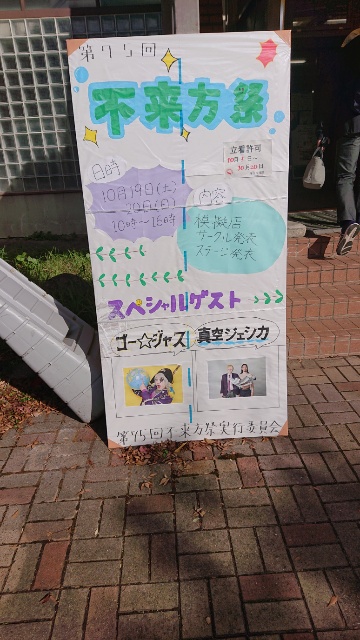 第75回
不来方祭
立看許可
日時
10月19日(土)
20日(日)
10時〜16時
内容
模擬店
サークル発表
ステージ発表
スペシャルゲスト
ゴー☆ジャス
真空ジェシカ
第75回不来方祭実行委員会